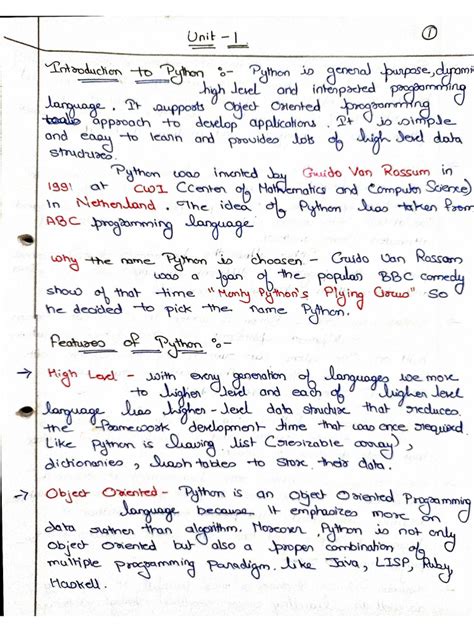 Unit - 1
1
Introduction to Python :- Python is general purpose, dynami
high level and interpreted programming
language. It supports Object Oriented programming
approach to develop applications. It is simple
and easy to learn and provides lots of high level data
structures.
Python was invented by Guido Van Rossum in
1991 at CWI (Center of Mathematics and Computer Science)
in Netherland. The idea of Python has taken from
ABC programming language
Why the name Python is choosen - Guido Van Rossam
was a fan of the popular BBC comedy
show of that time "Monty Python's Flying Circus" so
he decided to pick the name Python.
Features of Python :-
→ High Level - with every generation of languages we move
to higher level and each of higher level
language has higher-level data structure that reduces
the framework development time that was once required.
Like Python is having list (resizable array),
dictionaries, hash tables to store their data.
→ Object Oriented - Python is an Object Oriented Programming
language because. It emphasizes more on
data rather than algorithm. Moreover, Python is not only
object oriented but also a proper combination of
multiple programming paradigm. like Java, LISP, Ruby,
Haskell.